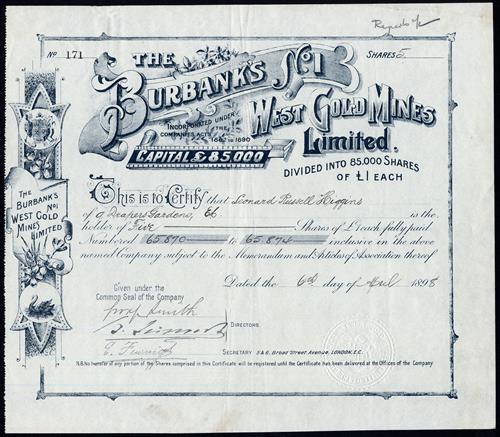 No 171
SHARES 5.
THE
BURBANK'S No1
WEST GOLD MINES
Limited.
INCORPORATED UNDER
THE
COMPANIES ACTS
1862 TO 1890
CAPITAL £85,000
DIVIDED INTO 85,000 SHARES
OF £1 EACH
THE
BURBANK'S
No1
WEST GOLD
MINES
LIMITED
This is to Certify that Leonard Russell Higgins
of 9 Drapers Gardens, EC. is the
holder of Five Shares of £1 each fully paid
Numbered 65,870 to 65,874 inclusive in the above
named Company subject to the Memorandum and Articles of Association thereof
Dated the 6th day of April 1898
Given under the
Common Seal of the Company
DIRECTORS.
SECRETARY 5 & 6, Broad Street Avenue, LONDON, E.C.
N.B. No transfer of any portion of the Shares comprised in this Certificate will be registered until the Certificate has been delivered at the Offices of the Company